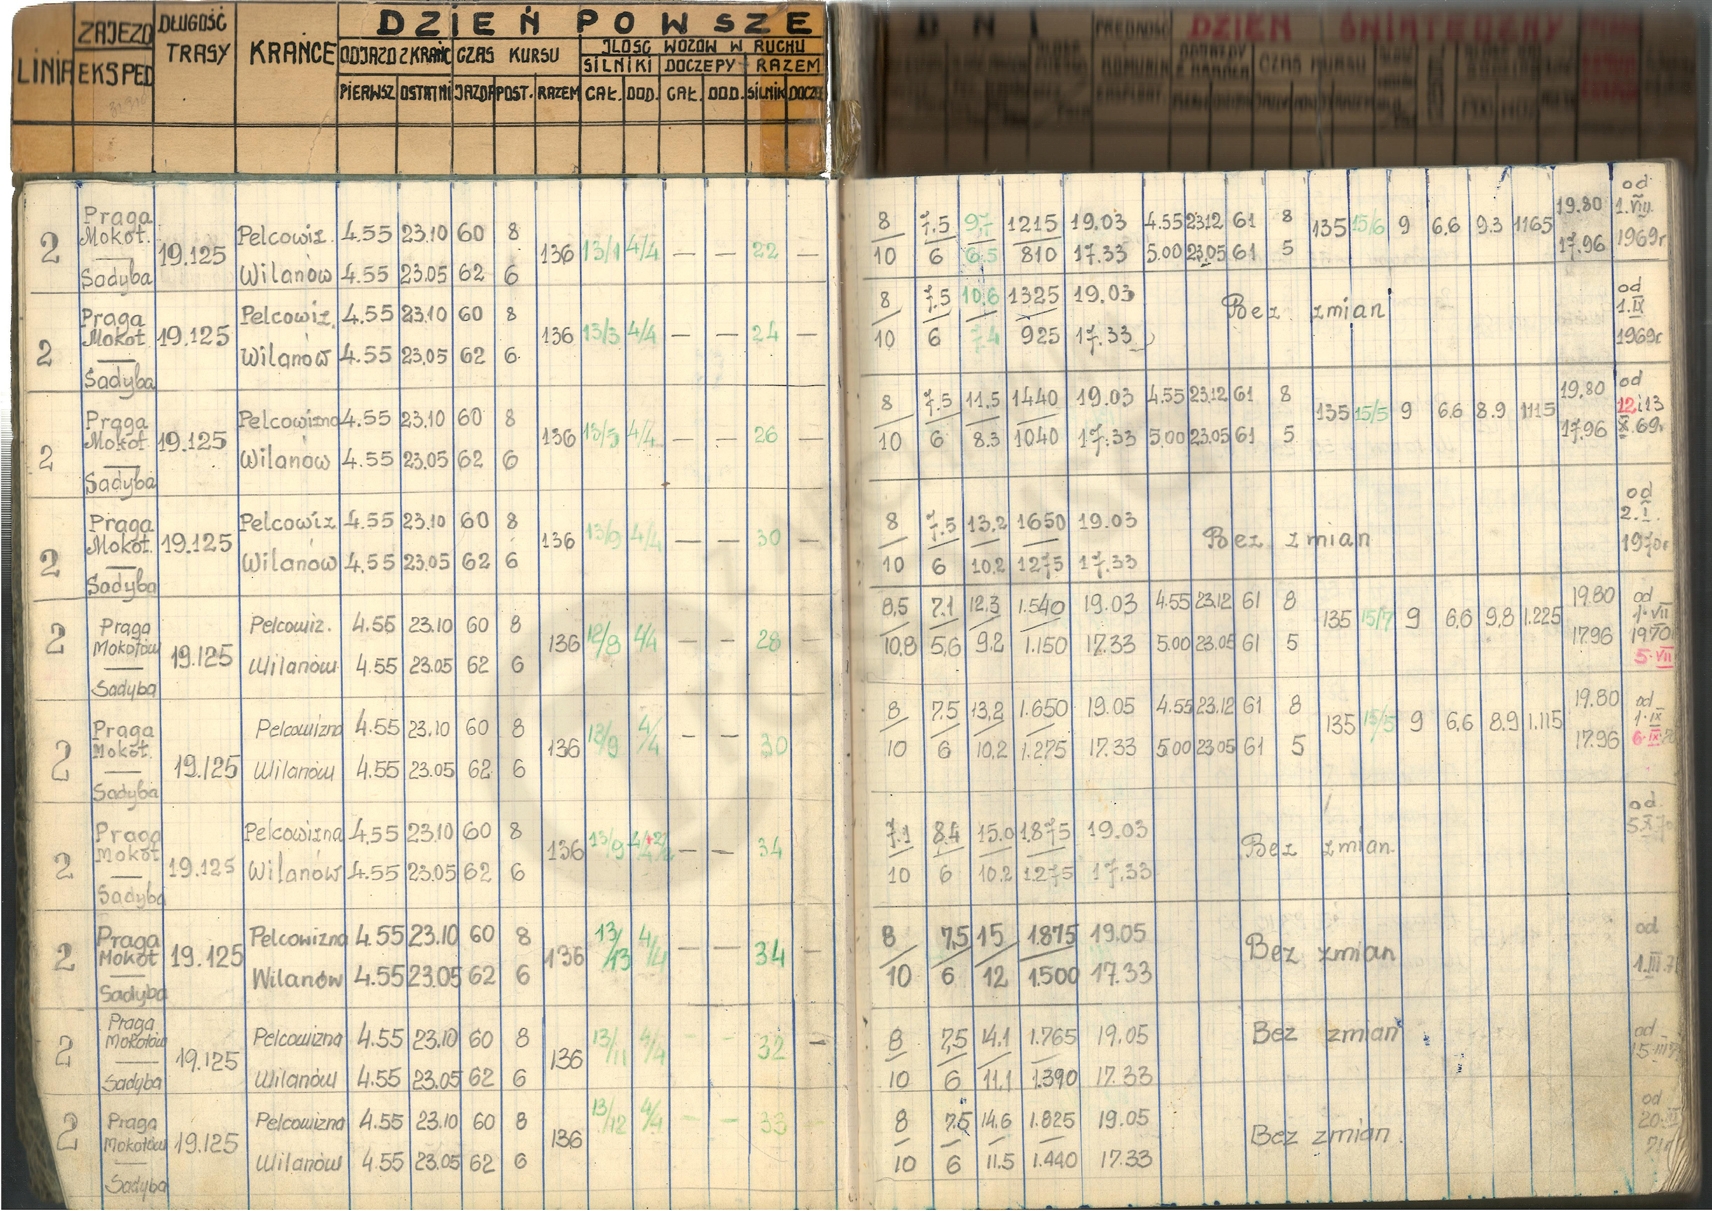 LINIA
ZAJEZD
EKSPED
DŁUGOŚĆ
TRASY
KRAŃCE
DZIEŃ POWSZE
ODJAZD Z KRAŃC
CZAS KURSU
ILOŚĆ WOZÓW W RUCHU
SILNIKI DOCZEPY RAZEM
PIERWSZ OSTATNI JAZDA POST. RAZEM CAŁ. DOD. CAŁ. DOD. SILNIK DOCZE
DNI
PRĘDKOŚĆ
KOMUNIK
EKSPLOAT
DZIEŃ ŚWIĄTECZNY
CZAS KURSU
2 Praga Mokot. — Sadyba 19.125 136 13/1 4/4 — — 22 —
Pelcowiz. 4.55 23.10 60 8
Wilanów 4.55 23.05 62 6
8 7.5 9,7 1215 19.03 4.55 23.12 61 8 135 15/6 9 6,6 9.3 1165 19.80 od 1.VII. 1969r
10 6 6.5 810 17.33 5.00 23.05 61 5 17.96
2 Praga Mokot. — Sadyba 19.125 136 13/3 4/4 — — 24 —
Pelcowiz. 4.55 23.10 60 8
Wilanów 4.55 23.05 62 6
8 7.5 10,6 1325 19.03 Bez zmian od 1.IX 1969r
10 6 7.4 925 17.33
2 Praga Mokot. — Sadyba 19.125 136 13/5 4/4 — — 26 —
Pelcowizna 4.55 23.10 60 8
Wilanów 4.55 23.05 62 6
8 7.5 11,5 1440 19.03 4.55 23.12 61 8 135 15/5 9 6.6 8.9 1115 19.80 od 12 i 13 X.69r
10 6 8.3 1040 17.33 5.00 23.05 61 5 17.96
2 Praga Mokot. — Sadyba 19.125 136 13/9 4/4 — — 30 —
Pelcowiz 4.55 23.10 60 8
Wilanów 4.55 23.05 62 6
8 7.5 13,2 1650 19.03 Bez zmian od 2.I. 1970r
10 6 10,2 1275 17.33
2 Praga Mokotów — Sadyba 19.125 136 12/8 4/4 — — 28 —
Pelcowiz. 4.55 23.10 60 8
Wilanów 4.55 23.05 62 6
8,5 7,1 12,3 1.540 19.03 4.55 23.12 61 8 135 15/7 9 6,6 9,8 1.225 19.80 od 1.VII 1970 5.VII
10,8 5,6 9,2 1.150 17.33 5.00 23.05 61 5 17.96
2 Praga Mokot. — Sadyba 19.125 136 13/9 4/4 — — 30
Pelcowizna 4.55 23.10 60 8
Wilanów 4.55 23.05 62 6
8 7,5 13,2 1.650 19.05 4.55 23.12 61 8 135 15/5 9 6,6 8.9 1.115 19.80 od 1.IX 6.IX
10 6 10,2 1.275 17.33 5.00 23.05 61 5 17.96
2 Praga Mokot — Sadyba 19.125 136 13/9 — — 34 —
Pelcowizna 4,55 23.10 60 8
Wilanów 4.55 23.05 62 6
7.1 8.4 15.0 1.875 19.03 Bez zmian. od
10 6 10.2 1.275 17.33
2 Praga Mokot — Sadyba 19.125 136 13/13 4/4 — — 34 —
Pelcowizna 4.55 23.10 60 8
Wilanów 4.55 23.05 62 6
8 7,5 15 1.875 19.05 Bez zmian od 1.III.71
10 6 12 1.500 17.33
2 Praga Mokotów — Sadyba 19.125 136 13/11 4/4 — — 32 —
Pelcowizna 4.55 23.10 60 8
Wilanów 4.55 23.05 62 6
8 7,5 14.1 1.765 19.05 Bez zmian od 15.III
10 6 11,1 1.390 17.33
2 Praga Mokotów — Sadyba 19.125 136 13/12 4/4 — — 33
Pelcowizna 4.55 23.10 60 8
Wilanów 4.55 23.05 62 6
8 7.5 14,6 1.825 19.05 Bez zmian. od
10 6 11.5 1.440 17.33